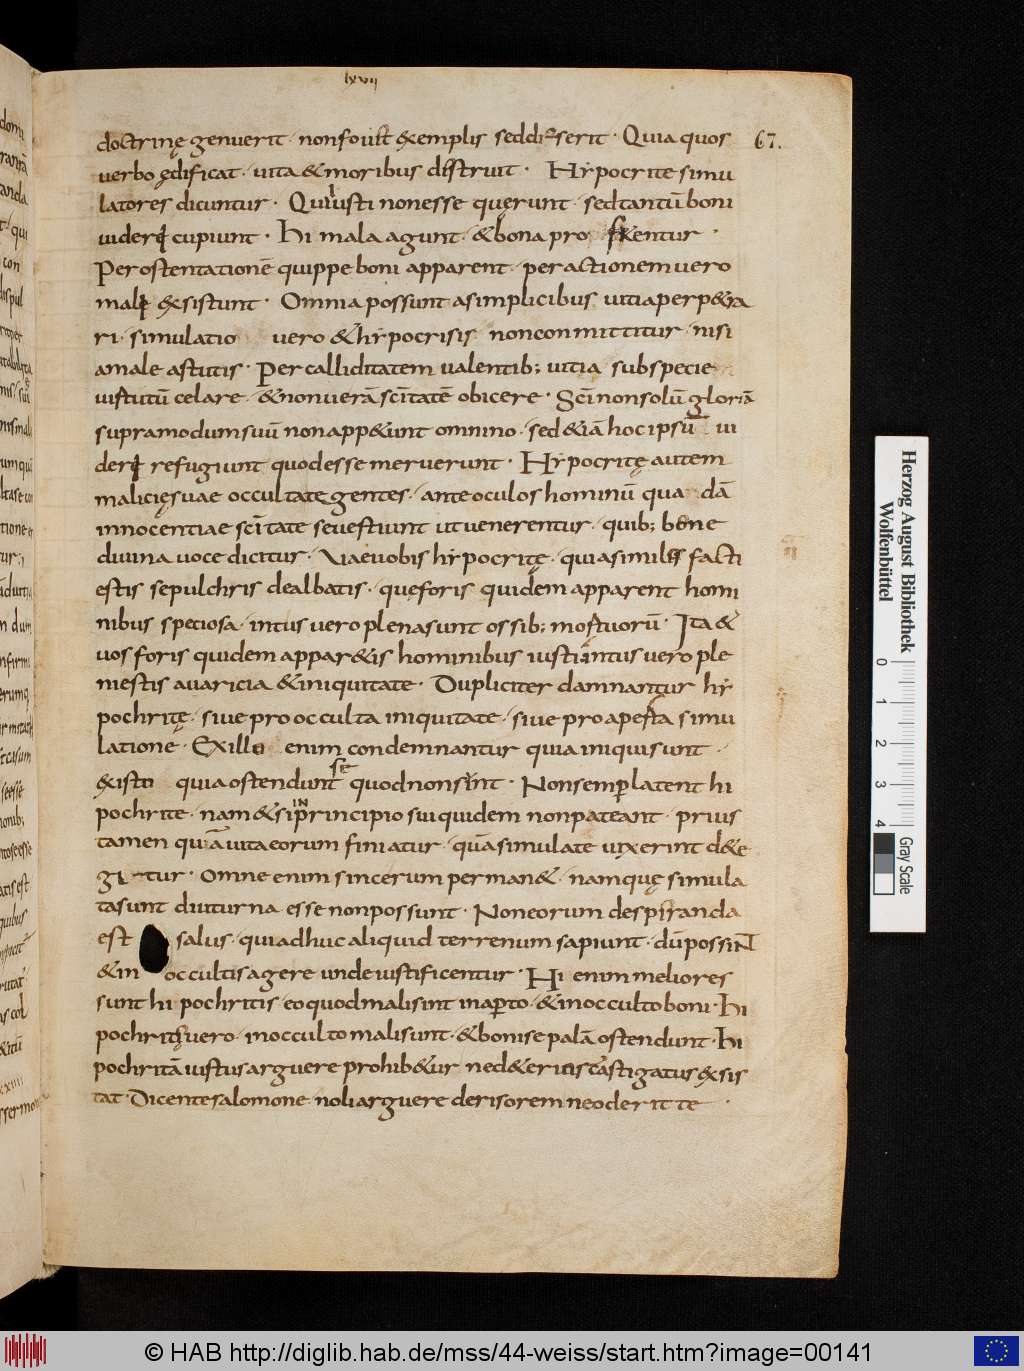 lxvii
67.
doctrinę genuerit · non fouit & exemplis sed disserit · Quia quos
uerbo ędificat · uita & moribus distruit · Hypocrite simu
latores dicuntur · Qui iusti non esse quęrunt · sed tantū boni
uideri cupiunt · Hi mala agunt · & bona pro entur ·
Per ostentationē quippe boni apparent · per actionem uero
mali &sistunt · Omnia possunt a simplicibus uitia perp&ra
ri · simulatio uero & hypocrisis non conmittitur · nisi
a male astutis · Per calliditatem ualentib; uitia sub specie
uirtutū celare · & non uerā scītatē obicere · Scī non solū gloriā
supra modum suū non app&unt omnino · sed &iā hoc ipsū ui
deri refugiunt quod esse meruerunt · Hypocritę autem
malicię suae occulta tegentes · ante oculos hominū quadā
innocentiae scītate se uestiunt ut uenerentur · quib; bene
diuina uoce dicitur · Vae uobis hypocritę · quia similes facti
estis sepulchris dealbatis · quę foris quidem apparent homi
nibus speciosa · intus uero plena sunt ossib; mortuorū · Ita &
uos foris quidem appar&is hominibus iusti intus uero ple
ni estis auaricia & iniquitate · Dupliciter damnantur hy
pochritę · siue pro occulta iniquitate · siue pro aperta simu
latione · Ex illo enim condemnantur quia iniqui sunt ·
&isto quia ostendunt se quod non sint · Non semper latent hi
pochrite · nam & si in principio sui quidem non pateant · prius
tamen quā uita eorum finiatur · quā simulate uixerint det&e
gitur · Omne enim sincerum perman& · nam quę simula
ta sunt diuturna esse non possunt · Non eorum desperanda
est salus · qui adhuc aliquid terrenum sapiunt · dū possiN
& in occultis agere unde iustificentur · Hi enim meliores
sunt hipochritis eo quod mali sint in aperto · & in occulto boni · Hi
pochritę uero · in occulto mali sunt · & boni se palā ostendunt · Hi
pochritā iustus arguere prohib&ur ne d&erius castigatus &sis
tat · Dicente salomone noli arguere derisorem ne oderit te ·
Herzog August Bibliothek
Wolfenbüttel
0 1 2 3 4
Gray Scale
© HAB http://diglib.hab.de/mss/44-weiss/start.htm?image=00141